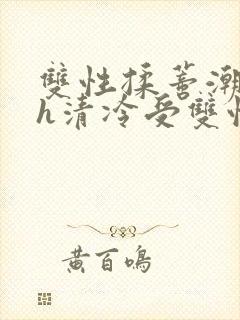 雙性揉蒂潮
h清冷受雙性
黃百鳴